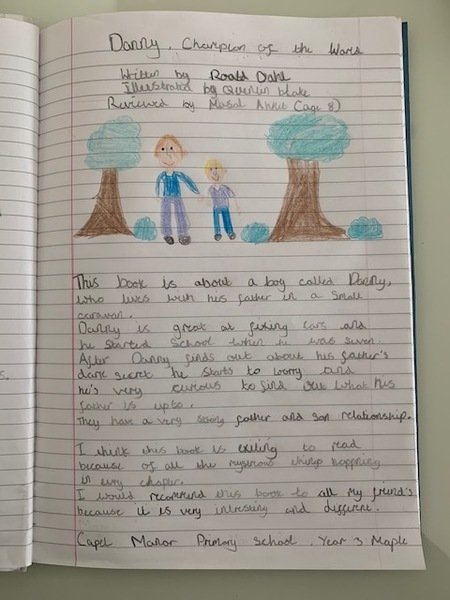 Danny, Champion of the World
Written by Roald Dahl
Illustrated by Quentin blake
Reviewed by (age 8)
This book is about a boy called Danny,
who lives with his father in a small
caravan.
Danny is great at fixing cars and
he started school when he was seven.
After Danny finds out about his father's
dark secret he starts to worry and
he's very curious to find out what his
father is upto.
They have a very strong father and son relationship.
I think this book is exiting to read
because of all the things
in evry chapter.
I would recommend this book to all my friend's
because it is very intresting and different.
Capel Manor Primary School. Year 3 Maple
s.